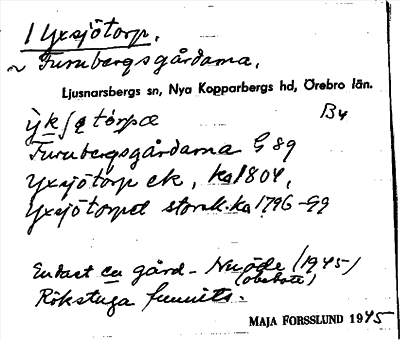 1 Yxsjötorp.
~ Furubergsgårdarna.
Ljusnarsbergs sn, Nya Kopparbergs hd, Örebro län.
By
Furubergsgårdarna G 89
Yxsjötorp ek, ka 1804,
Yxsjötorpet storsk. ka 1796-99
Endast en gård - Nu öde (1945)
(obebott)
Rökstuga funnits.
MAJA FORSSLUND 1945